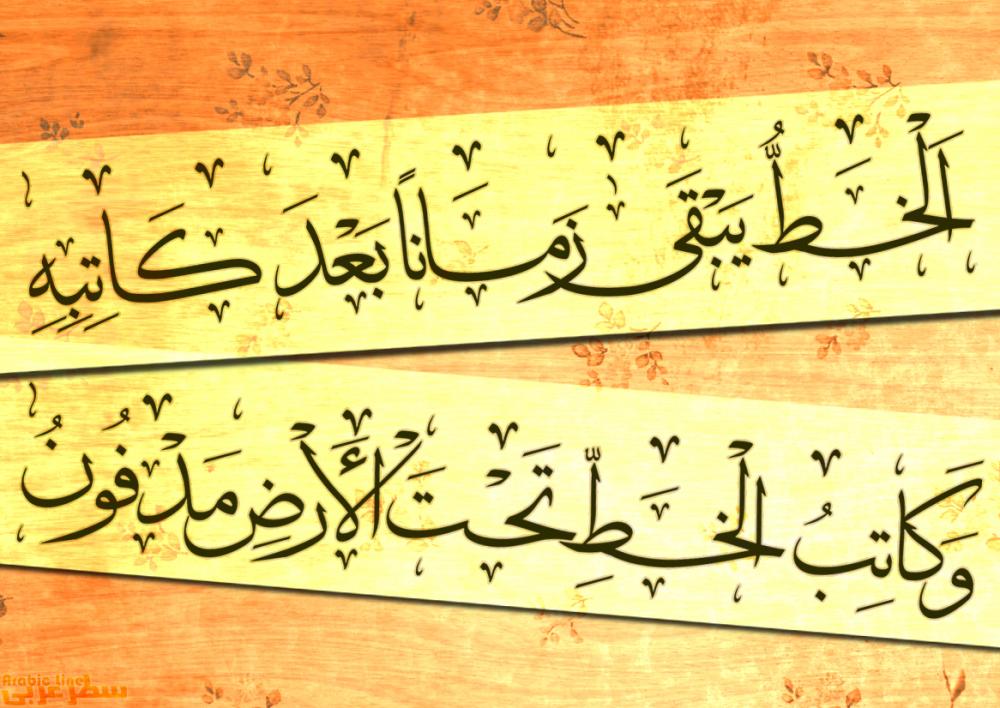 اَلْخَطُّ يَبْقَى زَمَاناً بَعْدَ كَاتِبِهِ
وَكَاتِبُ الْخَطِّ تَحْتَ الْأَرْضِ مَدْفُونُ
Arabic Line
سطر عربي